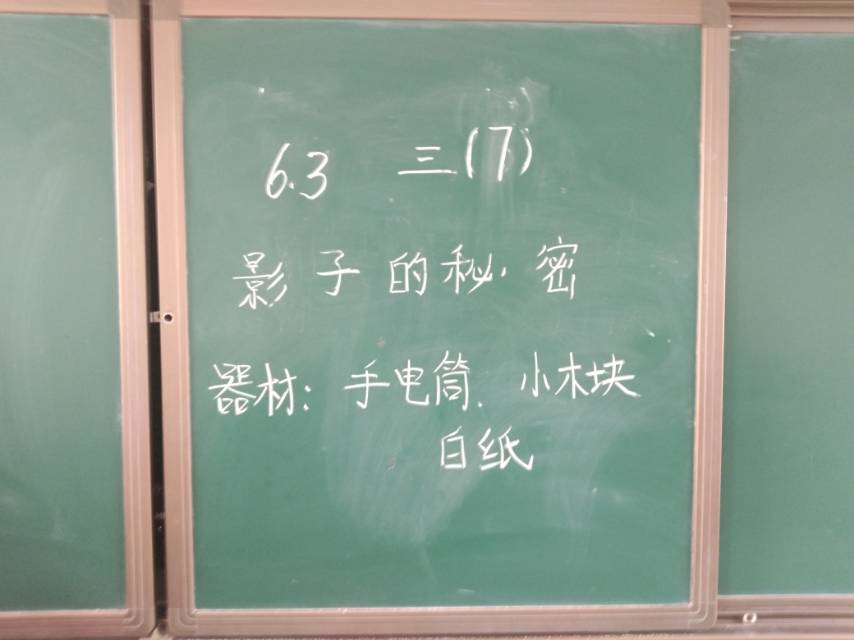 6.3 三(7)
影子的秘密
器材：手电筒、小木块
白纸